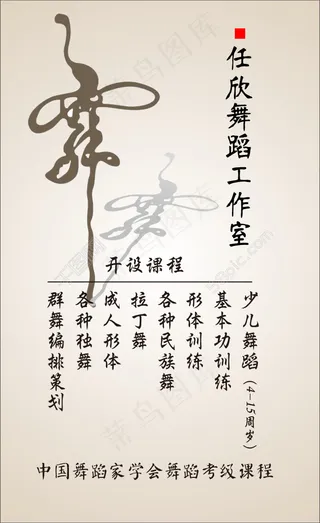 任欣舞蹈工作室
开设课程
少儿舞蹈(4-15周岁)
基本功训练
形体训练
各种民族舞
拉丁舞
成人形体
各种独舞
群舞编排策划
中国舞蹈家学会舞蹈考级课程